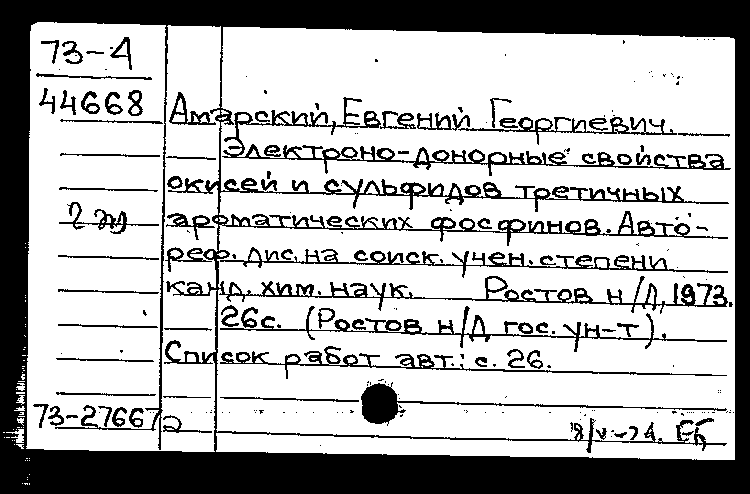 73-4
44668
Амарский, Евгений Георгиевич.
Электроно-донорные свойства
окисей и сульфидов третичных
2 экз
ароматических фосфинов. Авто-
реф. дис. на соиск. учен. степени
канд. хим. наук. Ростов н/Д, 1973.
26с. (Ростов н/Д гос. ун-т).
Список работ авт.: с. 26.
73-27667
8/V-74. ЕБ